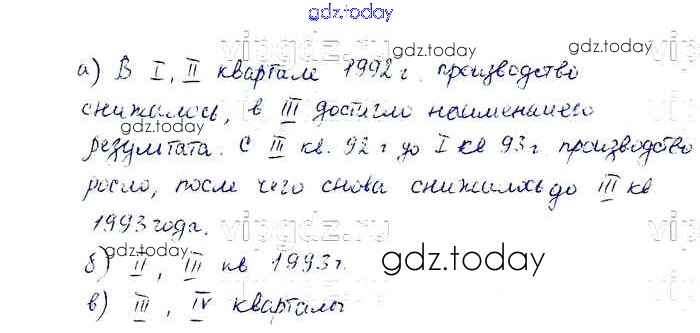 gdz.today
а) В I, II квартале 1992 г. производство
снижалось, в III достигло наименьшего
результата. С III кв. 92 г до I кв 93 г. производство
росло, после чего снова снижалось до III кв
1993 года.
б) II, III кв 1993 г.
в) III, IV кварталы
gdz.today
gdz.today
gdz.today
gdz.today
gdz.today
vipgdz.ru
vipgdz.ru
vipgdz.ru
vipgdz.ru